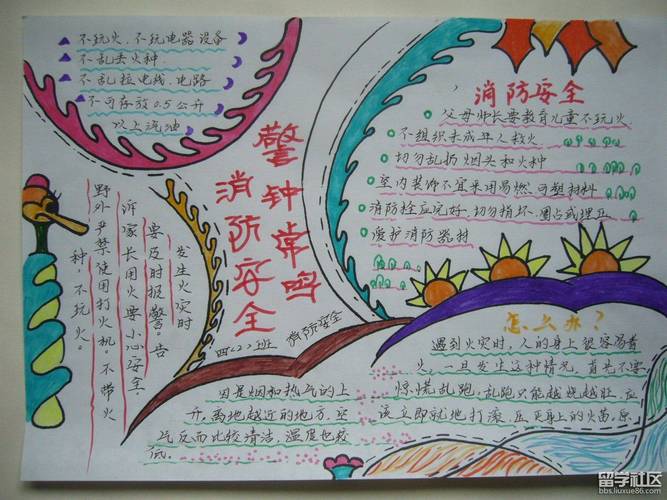 不玩火、不玩电器设备
不乱丢火种
不乱拉电线、电路
不可存放0.5公斤
以上汽油
警钟常鸣
消防安全
消防安全
父母师长要教育儿童不玩火
不组织未成年人救火
切勿乱扔烟头和火种
室内装饰不宜采用易燃可塑材料
消防栓应完好、切勿损坏、圈占或埋压
爱护消防器材
发生火灾时
要及时报警。告
诉家长用火要小心安全。
野外严禁使用打火机。不带火
种,不玩火。
四〈2〉班
消防安全
因是烟和热气的上
升,离地越近的地方,空
气反而比较清洁,温度也较
低。
怎么办?
遇到火灾时,人的身上很容易着
火,一旦发生这种情况,首先不要
惊慌乱跑,乱跑只能越烧越旺,应
该立即就地打滚,压灭身上的火苗,原
留学社区
bbs.liuxue86.com